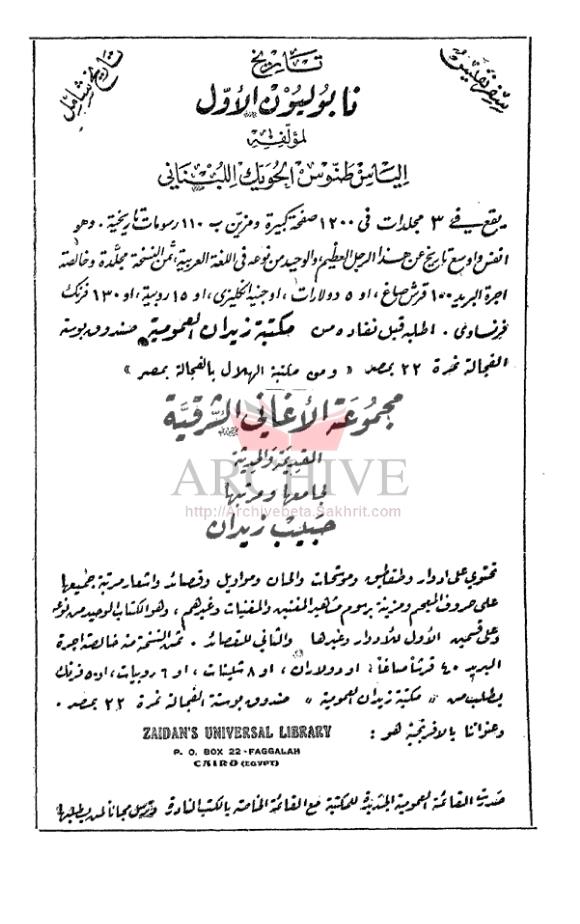 سفر نفيس
تاريخ شامل
تاريخ
نابوليون الأول
لمؤلفه
الياس طنوس الحويك اللبناني
يقع في ٣ مجلدات في ١٢٠٠ صفحة كبيرة ومزين ب ١١٠ رسومات تاريخية . وهو
انفس واوسع تاريخ عن هذا الرجل العظيم، والوحيد من نوعه في اللغة العربية، ثمن النسخة مجلدة وخالصة
اجرة البريد ١٥٥ قرش صاغ، او ٥ دولارات، او جنيه انجليزي، او ١٥ روبية، او ١٣٠ فرنك
فرنساوي . اطلبه قبل نفاده من مكتبة زيدان العمومية صندوق بوستة
الفجالة نمرة ٢٢ بمصر « ومن مكتبة الهلال بالفجالة بمصر »
مجموعة الأغاني الشرقية
القديمة والحديثة
لجامعها ومرتبها
حبيب زيدان
تحتوي على ادوار وطقاطيق وموشحات والحان ومواويل وقصائد واشعار مرتبة جميعها
على حروف المعجم ومزينة برسوم مشاهير المغنين والمغنيات وغيرهم، وهو الكتاب الوحيد من نوعه
وعلى قسمين الأول للأدوار وغيرها والثاني للقصائد . ثمن النسخة منه خالصة اجرة
البريد ٤٠ قرشاً صاغاً، او دولاران، او ٨ شلينات، او ٦ روبيات، او ٥٠ فرنك
يطلب من « مكتبة زيدان العمومية » صندوق بوستة الفجالة نمرة ٢٢ بمصر .
وعنواننا بالافرنجية هو :
ZAIDAN'S UNIVERSAL LIBRARY
P. O. BOX 22 - FAGGALAH
CAIRO (EGYPT)
صدرت القائمة العمومية الجديدة للمكتبة مع القائمة الخاصة بالكتب النادرة وترسل مجاناً لمن يطلبها
ARCHIVE
http://Archivebeta.Sakhrit.com